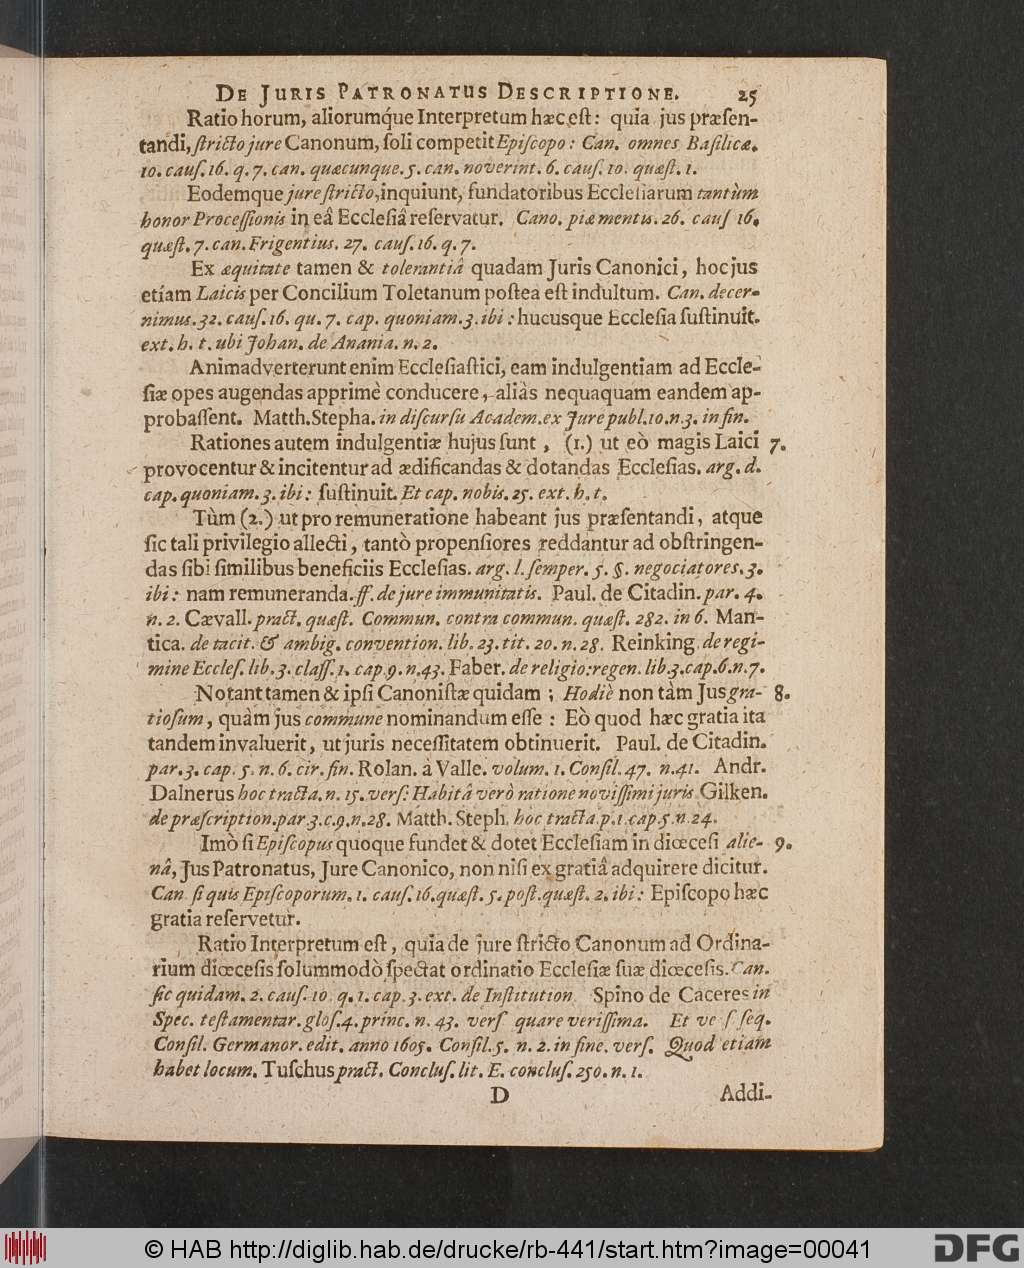 DE JURIS PATRONATUS DESCRIPTIONE. 25
Ratio horum, aliorumq́ue Interpretum hæc eſt: quia jus præſen-
tandi, ſtricto jure Canonum, ſoli competit Epiſcopo: Can. omnes Baſilicæ.
10. cauſ. 16. q. 7. can. quæcunque. 5. can. noverint. 6. cauſ. 10. quæſt. 1.
Eodemque jure ſtricto, inquiunt, fundatoribus Eccleſiarum tantùm
honor Proceſſionis in eâ Eccleſiâ reſervatur. Cano. piæ mentis. 26. cauſ 16.
quæſt. 7. can. Frigentius. 27. cauſ. 16. q. 7.
Ex æquitate tamen & tolerantiâ quadam Juris Canonici, hoc jus
etiam Laicis per Concilium Toletanum poſtea eſt indultum. Can. decer-
nimus. 32. cauſ. 16. qu. 7. cap. quoniam. 3. ibi: hucusque Eccleſia ſuſtinuit.
ext. h. t. ubi Johan. de Anania. n. 2.
Animadverterunt enim Eccleſiaſtici, eam indulgentiam ad Eccle-
ſiæ opes augendas apprimè conducere, aliàs nequaquam eandem ap-
probaſſent. Matth. Stepha. in diſcurſu Academ. ex Jure publ. 10. n. 3. in fin.
Rationes autem indulgentiæ hujus ſunt, (1.) ut eò magis Laici 7.
provocentur & incitentur ad ædificandas & dotandas Eccleſias. arg. d.
cap. quoniam. 3. ibi: ſuſtinuit. Et cap. nobis. 25. ext. h. t.
Tùm (2.) ut pro remuneratione habeant jus præſentandi, atque
ſic tali privilegio allecti, tantò propenſiores reddantur ad obſtringen-
das ſibi ſimilibus beneficiis Eccleſias. arg. l. ſemper. 5. §. negociatores. 3.
ibi: nam remuneranda. ff. de jure immunitatis. Paul. de Citadin. par. 4.
n. 2. Cævall. pract. quæſt. Commun. contra commun. quæſt. 282. in 6. Man-
tica. de tacit. & ambig. convention. lib. 23. tit. 20. n. 28. Reinking de regi-
mine Eccleſ. lib. 3. claſſ. 1. cap 9. n. 43. Faber. de religio: regen. lib. 3. cap. 6. n. 7.
Notant tamen & ipſi Canoniſtæ quidam; Hodiè non tàm Jus gra- 8.
tioſum, quàm jus commune nominandum eſſe: Eò quod hæc gratia ita
tandem invaluerit, ut juris neceſſitatem obtinuerit. Paul. de Citadin.
par. 3. cap. 5. n. 6. cir. fin. Rolan. à Valle. volum. 1. Conſil. 47. n. 41. Andr.
Dalnerus hoc tracta. n. 15. verſ: Habitâ verò ratione noviſſimi juris Gilken.
de præſcription. par 3. c. 9. n. 28. Matth. Steph. hoc tracta. p. 1. cap 5. n. 24.
Imò ſi Epiſcopus quoque fundet & dotet Eccleſiam in diœceſi alie- 9.
nâ, Jus Patronatus, Jure Canonico, non niſi ex gratiâ adquirere dicitur.
Can. ſi quis Epiſcoporum. 1. cauſ. 16. quæſt. 5. poſt. quæſt. 2. ibi: Epiſcopo hæc
gratia reſervetur.
Ratio Interpretum eſt, quia de jure ſtricto Canonum ad Ordina-
rium diœceſis ſolummodò ſpectat ordinatio Eccleſiæ ſuæ diœceſis. Can.
ſic quidam. 2. cauſ. 10. q. 1. cap. 3. ext. de Inſtitution. Spino de Caceres in
Spec. teſtamentar. gloſ. 4. princ. n. 43. verſ quare veriſſima. Et ve ſ ſeq.
Conſil. Germanor. edit. anno 1605. Conſil. 5. n. 2. in fine. verſ. Quod etiam
habet locum. Tuſchus pract. Concluſ. lit. E. concluſ. 250. n. 1.
D Addi-
© HAB http://diglib.hab.de/drucke/rb-441/start.htm?image=00041
DFG